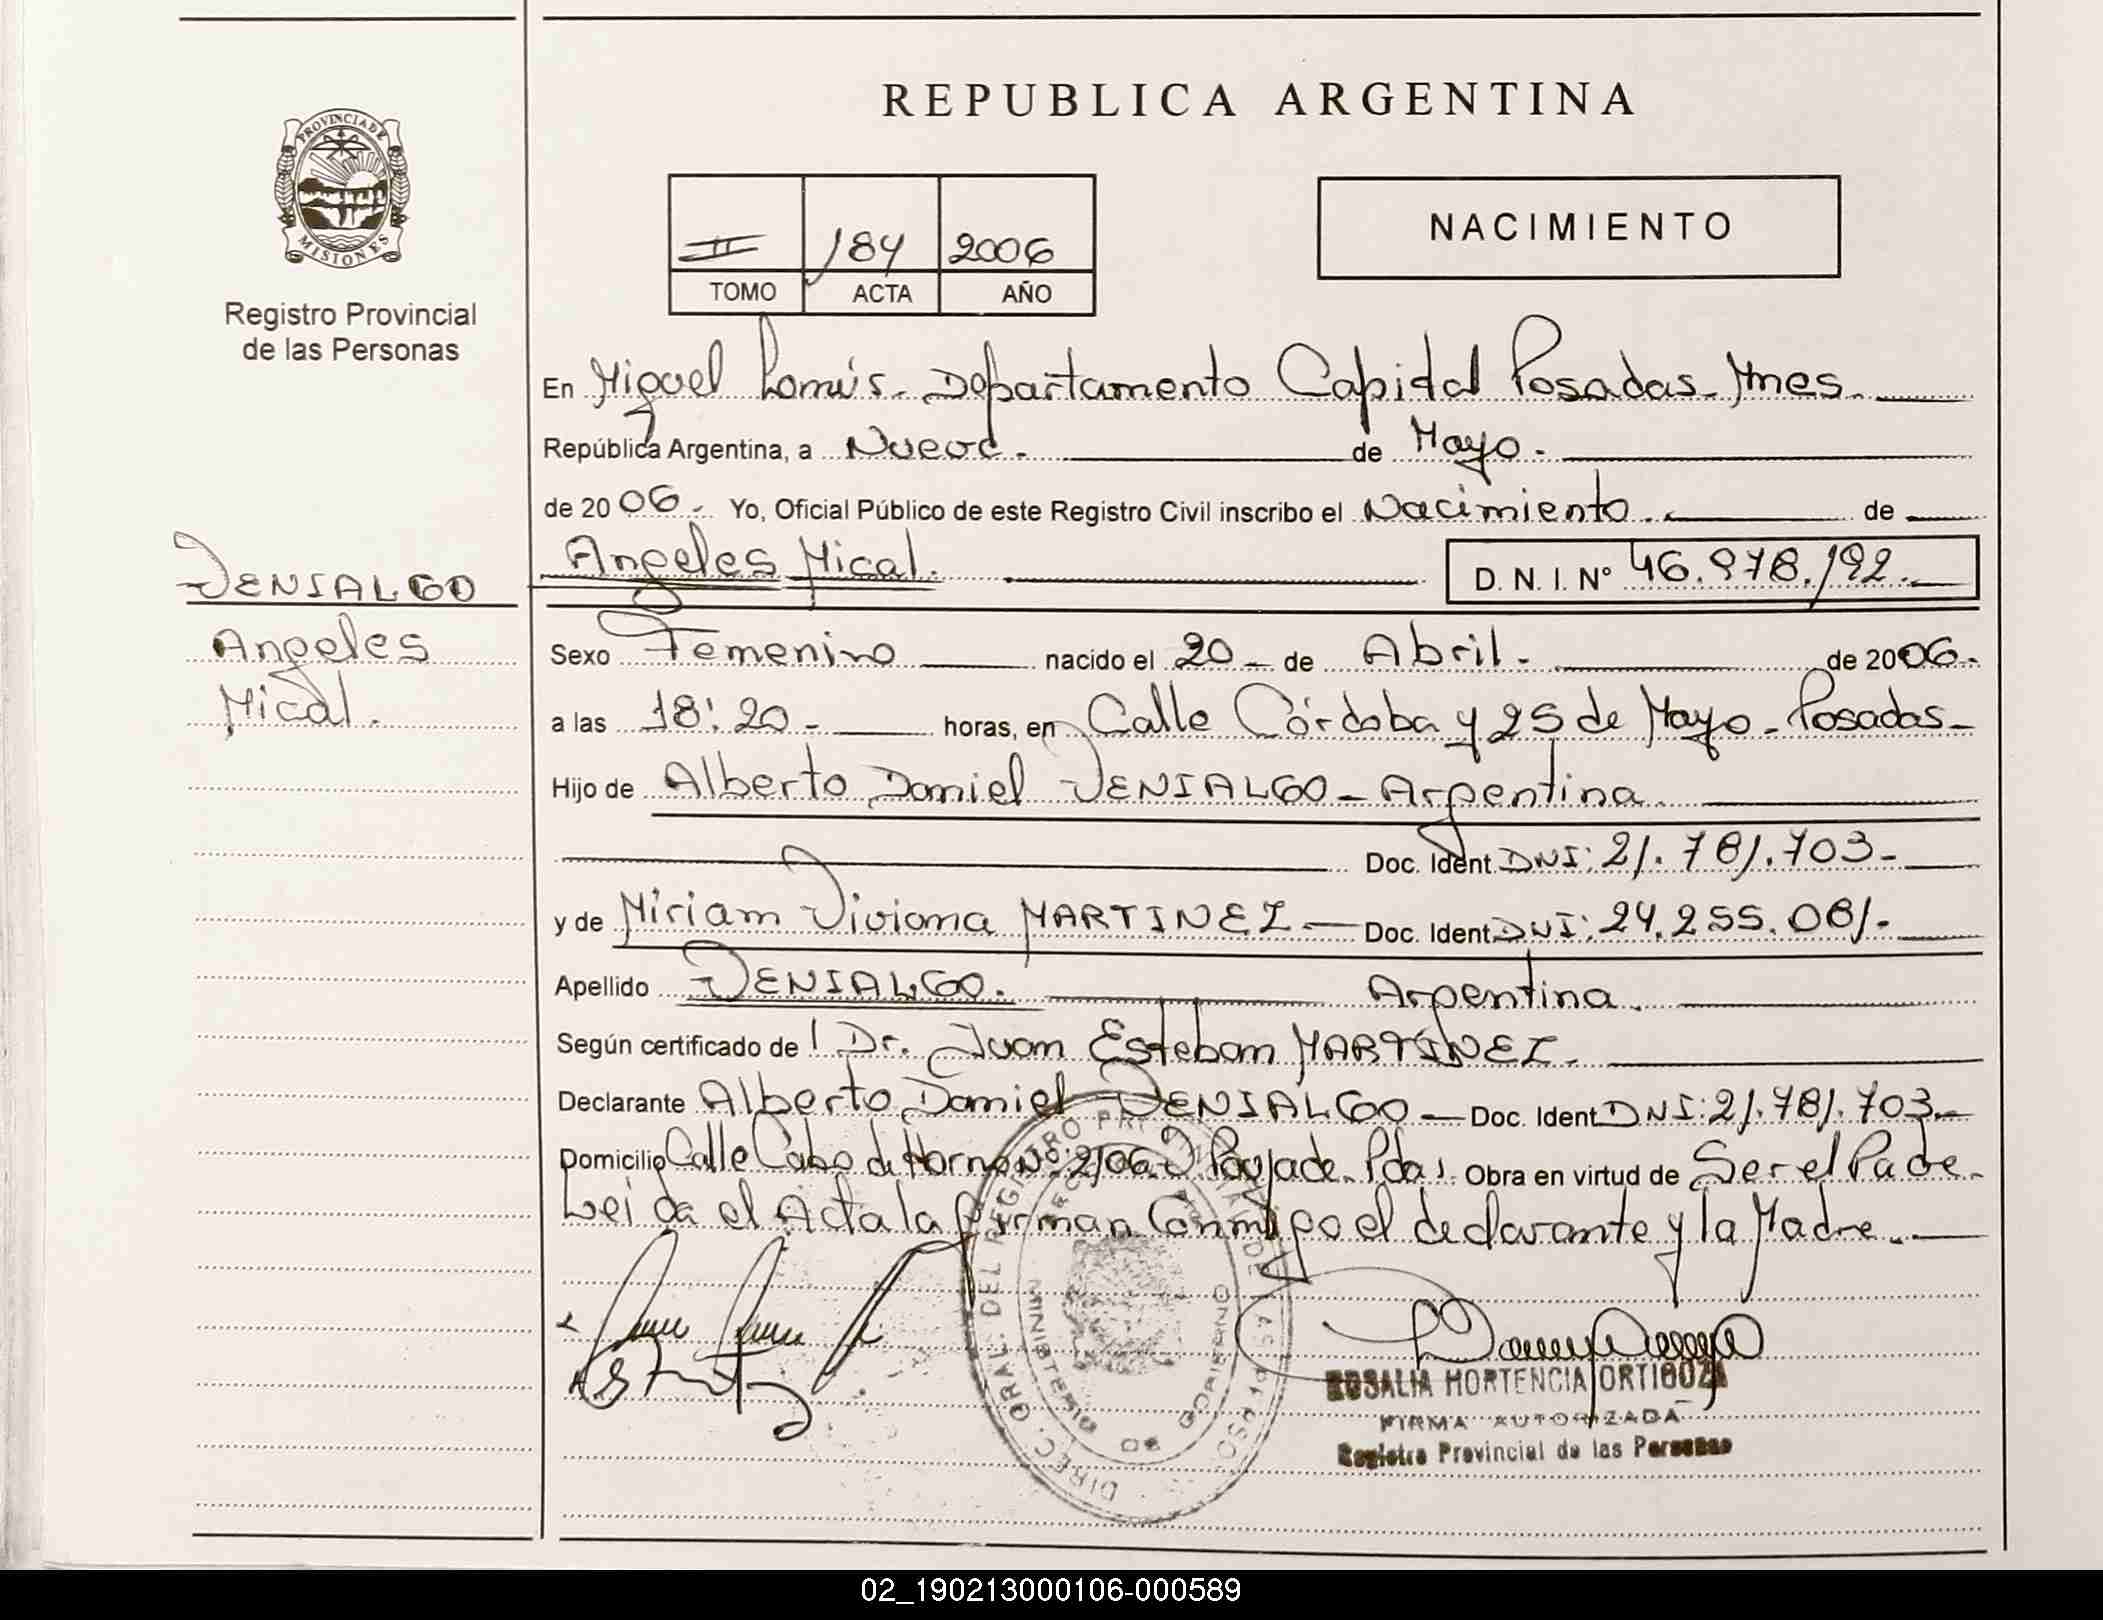 REPUBLICA ARGENTINA
PROVINCIA DE
MISIONES
Registro Provincial
de las Personas
II 184 2006
TOMO ACTA AÑO
NACIMIENTO
En Miguel Lanús. Departamento Capital Posadas Mnes.
República Argentina, a Nueve. de Mayo.
de 2006. Yo, Oficial Público de este Registro Civil inscribo el Nacimiento. de
Angeles Mical. D. N. I. Nº 46.978.192.
VENIALGO
Angeles
Mical.
Sexo Femenino nacido el 20 de Abril. de 2006.
a las 18:20 horas, en Calle Córdoba y 25 de Mayo - Posadas-
Hijo de Alberto Daniel VENIALGO - Argentina
Doc. Ident. DNI: 21.781.703-
y de Miriam Viviana MARTINEZ - Doc. Ident. DNI: 24.255.081.
Apellido VENIALGO. Argentina.
Según certificado de l Dr. Juan Esteban MARTÍNEZ.
Declarante Alberto Daniel VENIALGO - Doc. Ident. DNI: 21.781.703-
Domicilio Calle Cabo de Hornos Nº 2106 Poujade. Pdas. Obra en virtud de Ser el Padre.
Leida el Acta la firman Conmigo el declarante y la Madre.
DIREC. GRAL. DEL REGISTRO
MINISTERIO DE GOBIERNO
ROSALIA HORTENCIA ORTIGOZA
FIRMA AUTORIZADA
Registro Provincial de las Personas
02_190213000106-000589